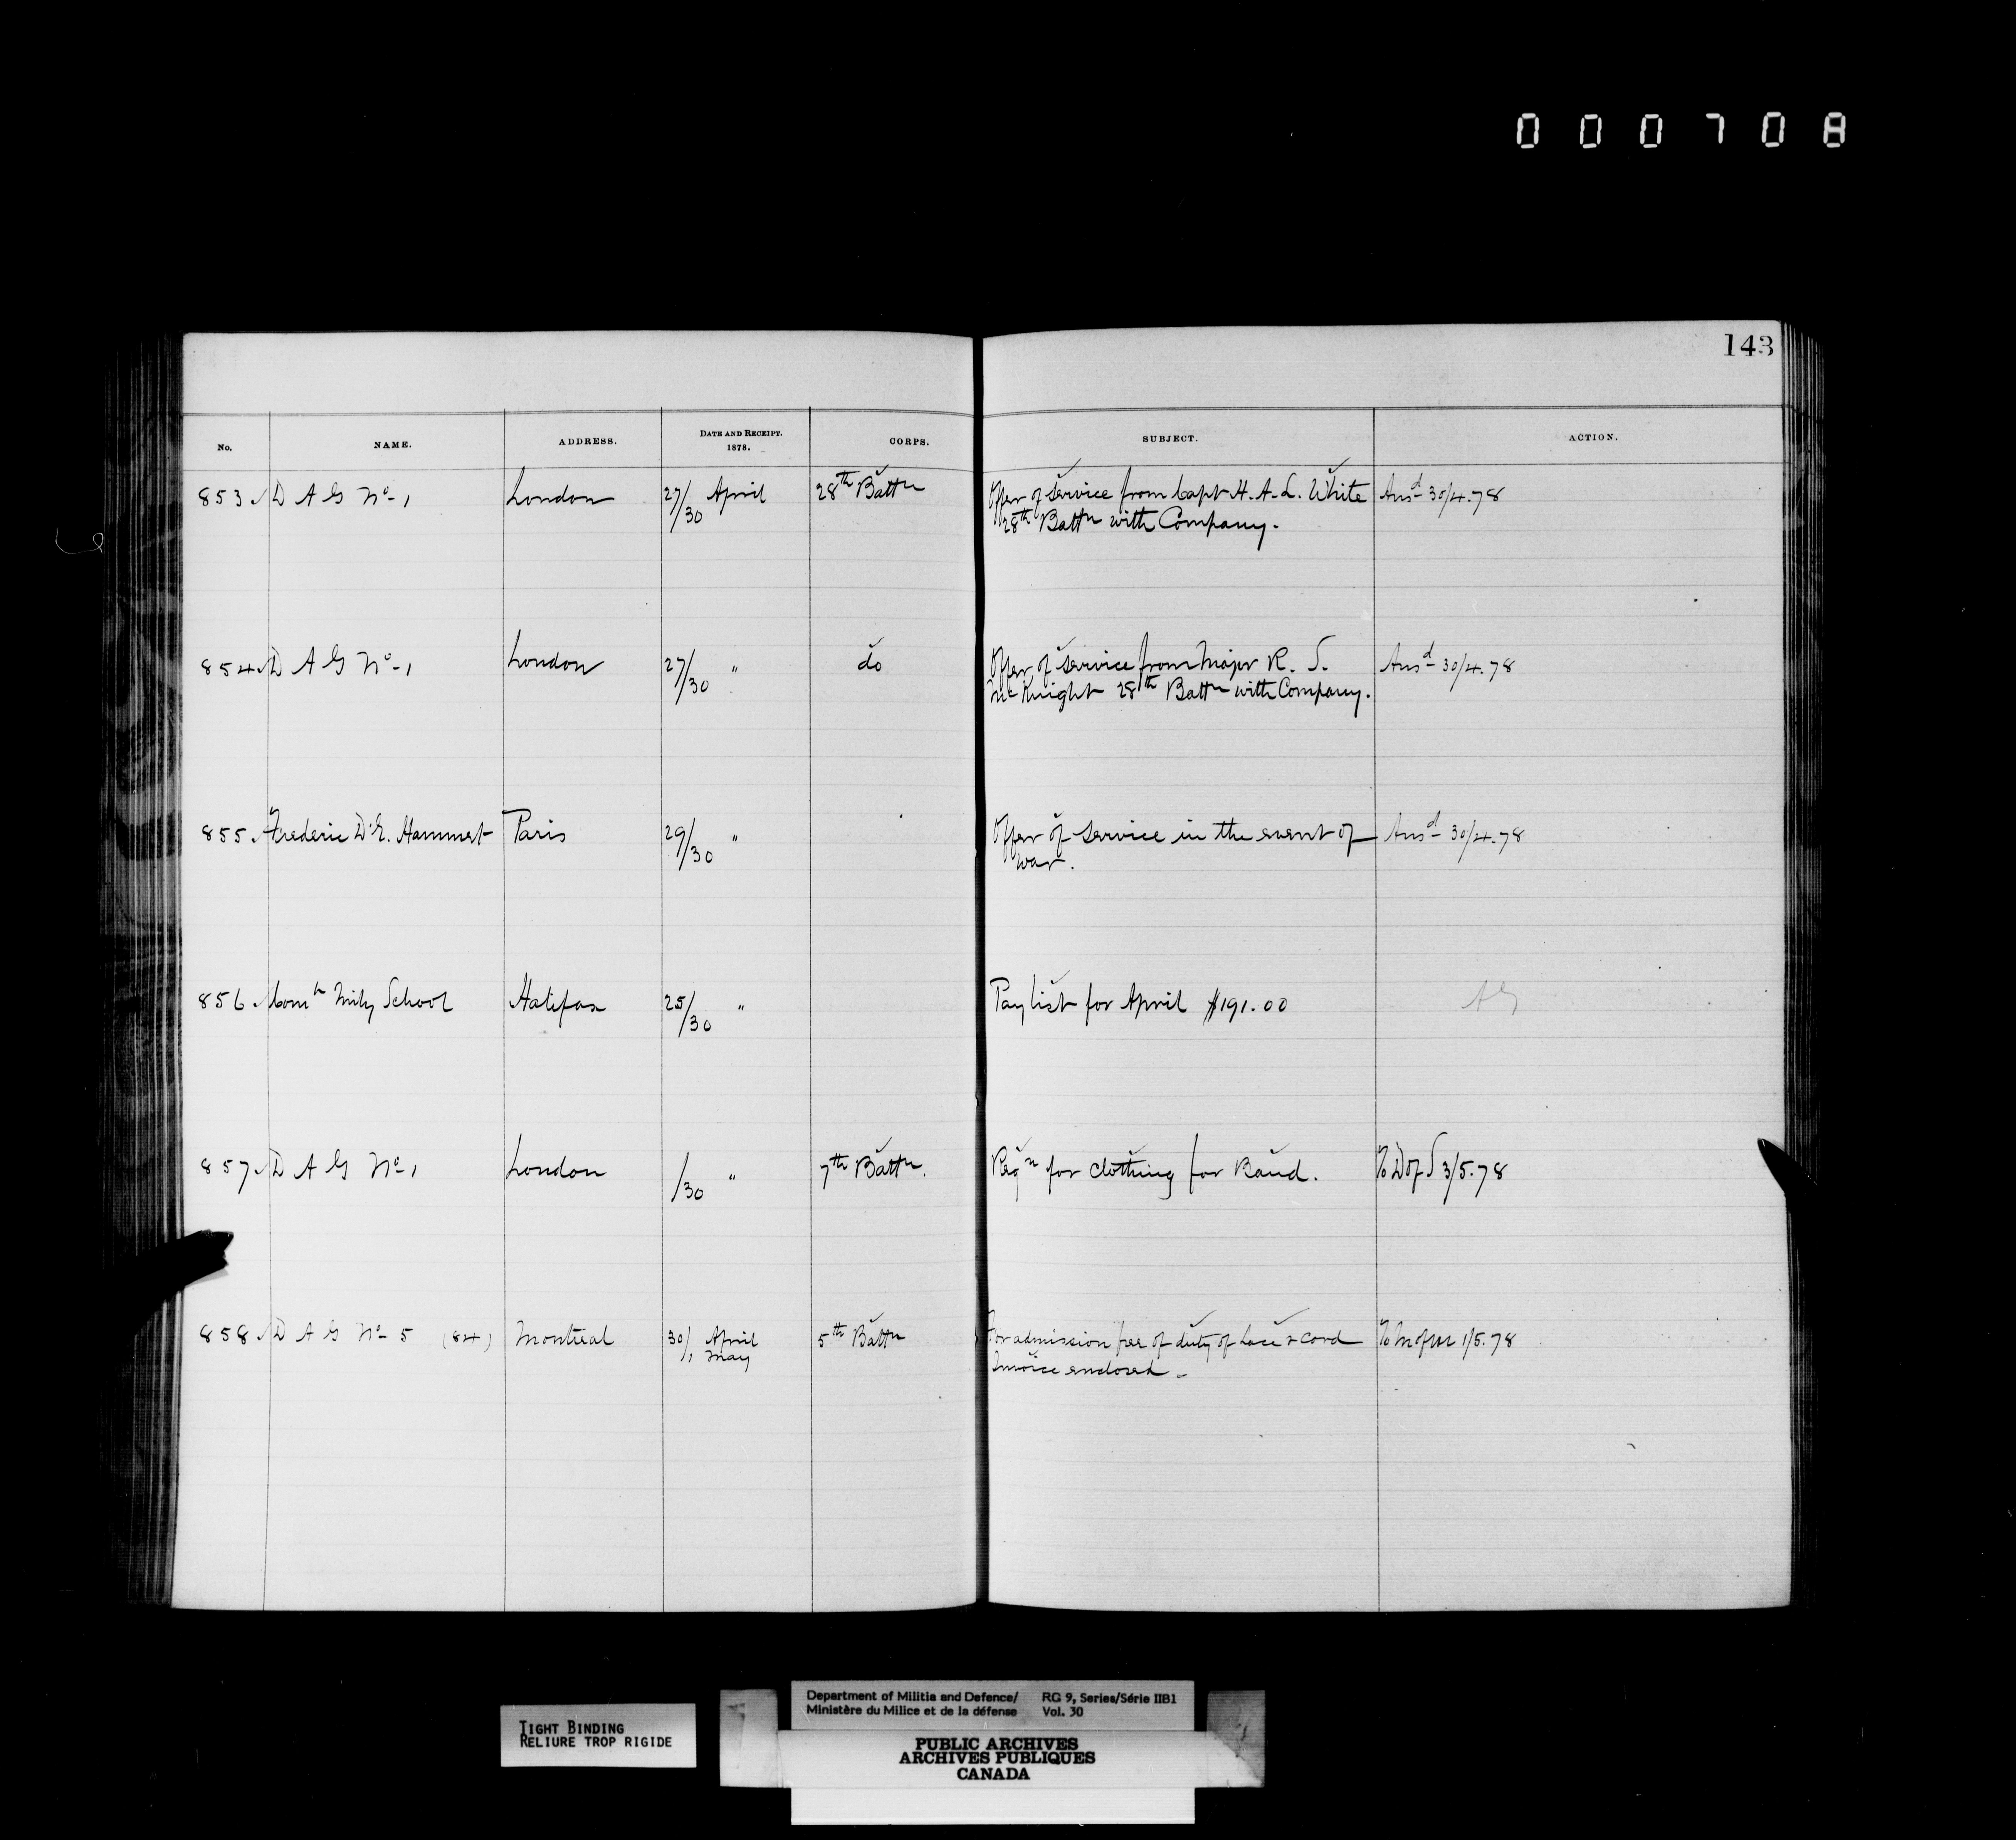 000708
143
No. NAME. ADDRESS. DATE AND RECEIPT. 1878. CORPS. SUBJECT. ACTION.
853 D A G No 1 London 27/30 April 28th Battn Offer of Service from Capt H. A. L. White Ansd 30/4.78
28th Battn with Company.
854 D A G No 1 London 27/30 " do Offer of Service from Major R. S. Ansd 30/4.78
McKnight 28th Battn with Company.
855 Frederic D. E. Paris 29/30 " Offer of Service in the event of Ansd 30/4.78
war.
856 Comt Mily School Halifax 25/30 " Pay list for April $191.00 AG
857 D A G No 1 London /30 " 7th Battn. Reqn for clothing for Band. To D of S 3/5.78
858 D A G No 5 (84) Montreal 30/1 April May 5th Battn For admission free of duty of Lace & cord To M of M 1/5.78
Invoice enclosed.
TIGHT BINDING
RELIURE TROP RIGIDE
Department of Militia and Defence/ RG 9, Series/Série IIB1
Ministère du Milice et de la défense Vol. 30
PUBLIC ARCHIVES
ARCHIVES PUBLIQUES
CANADA